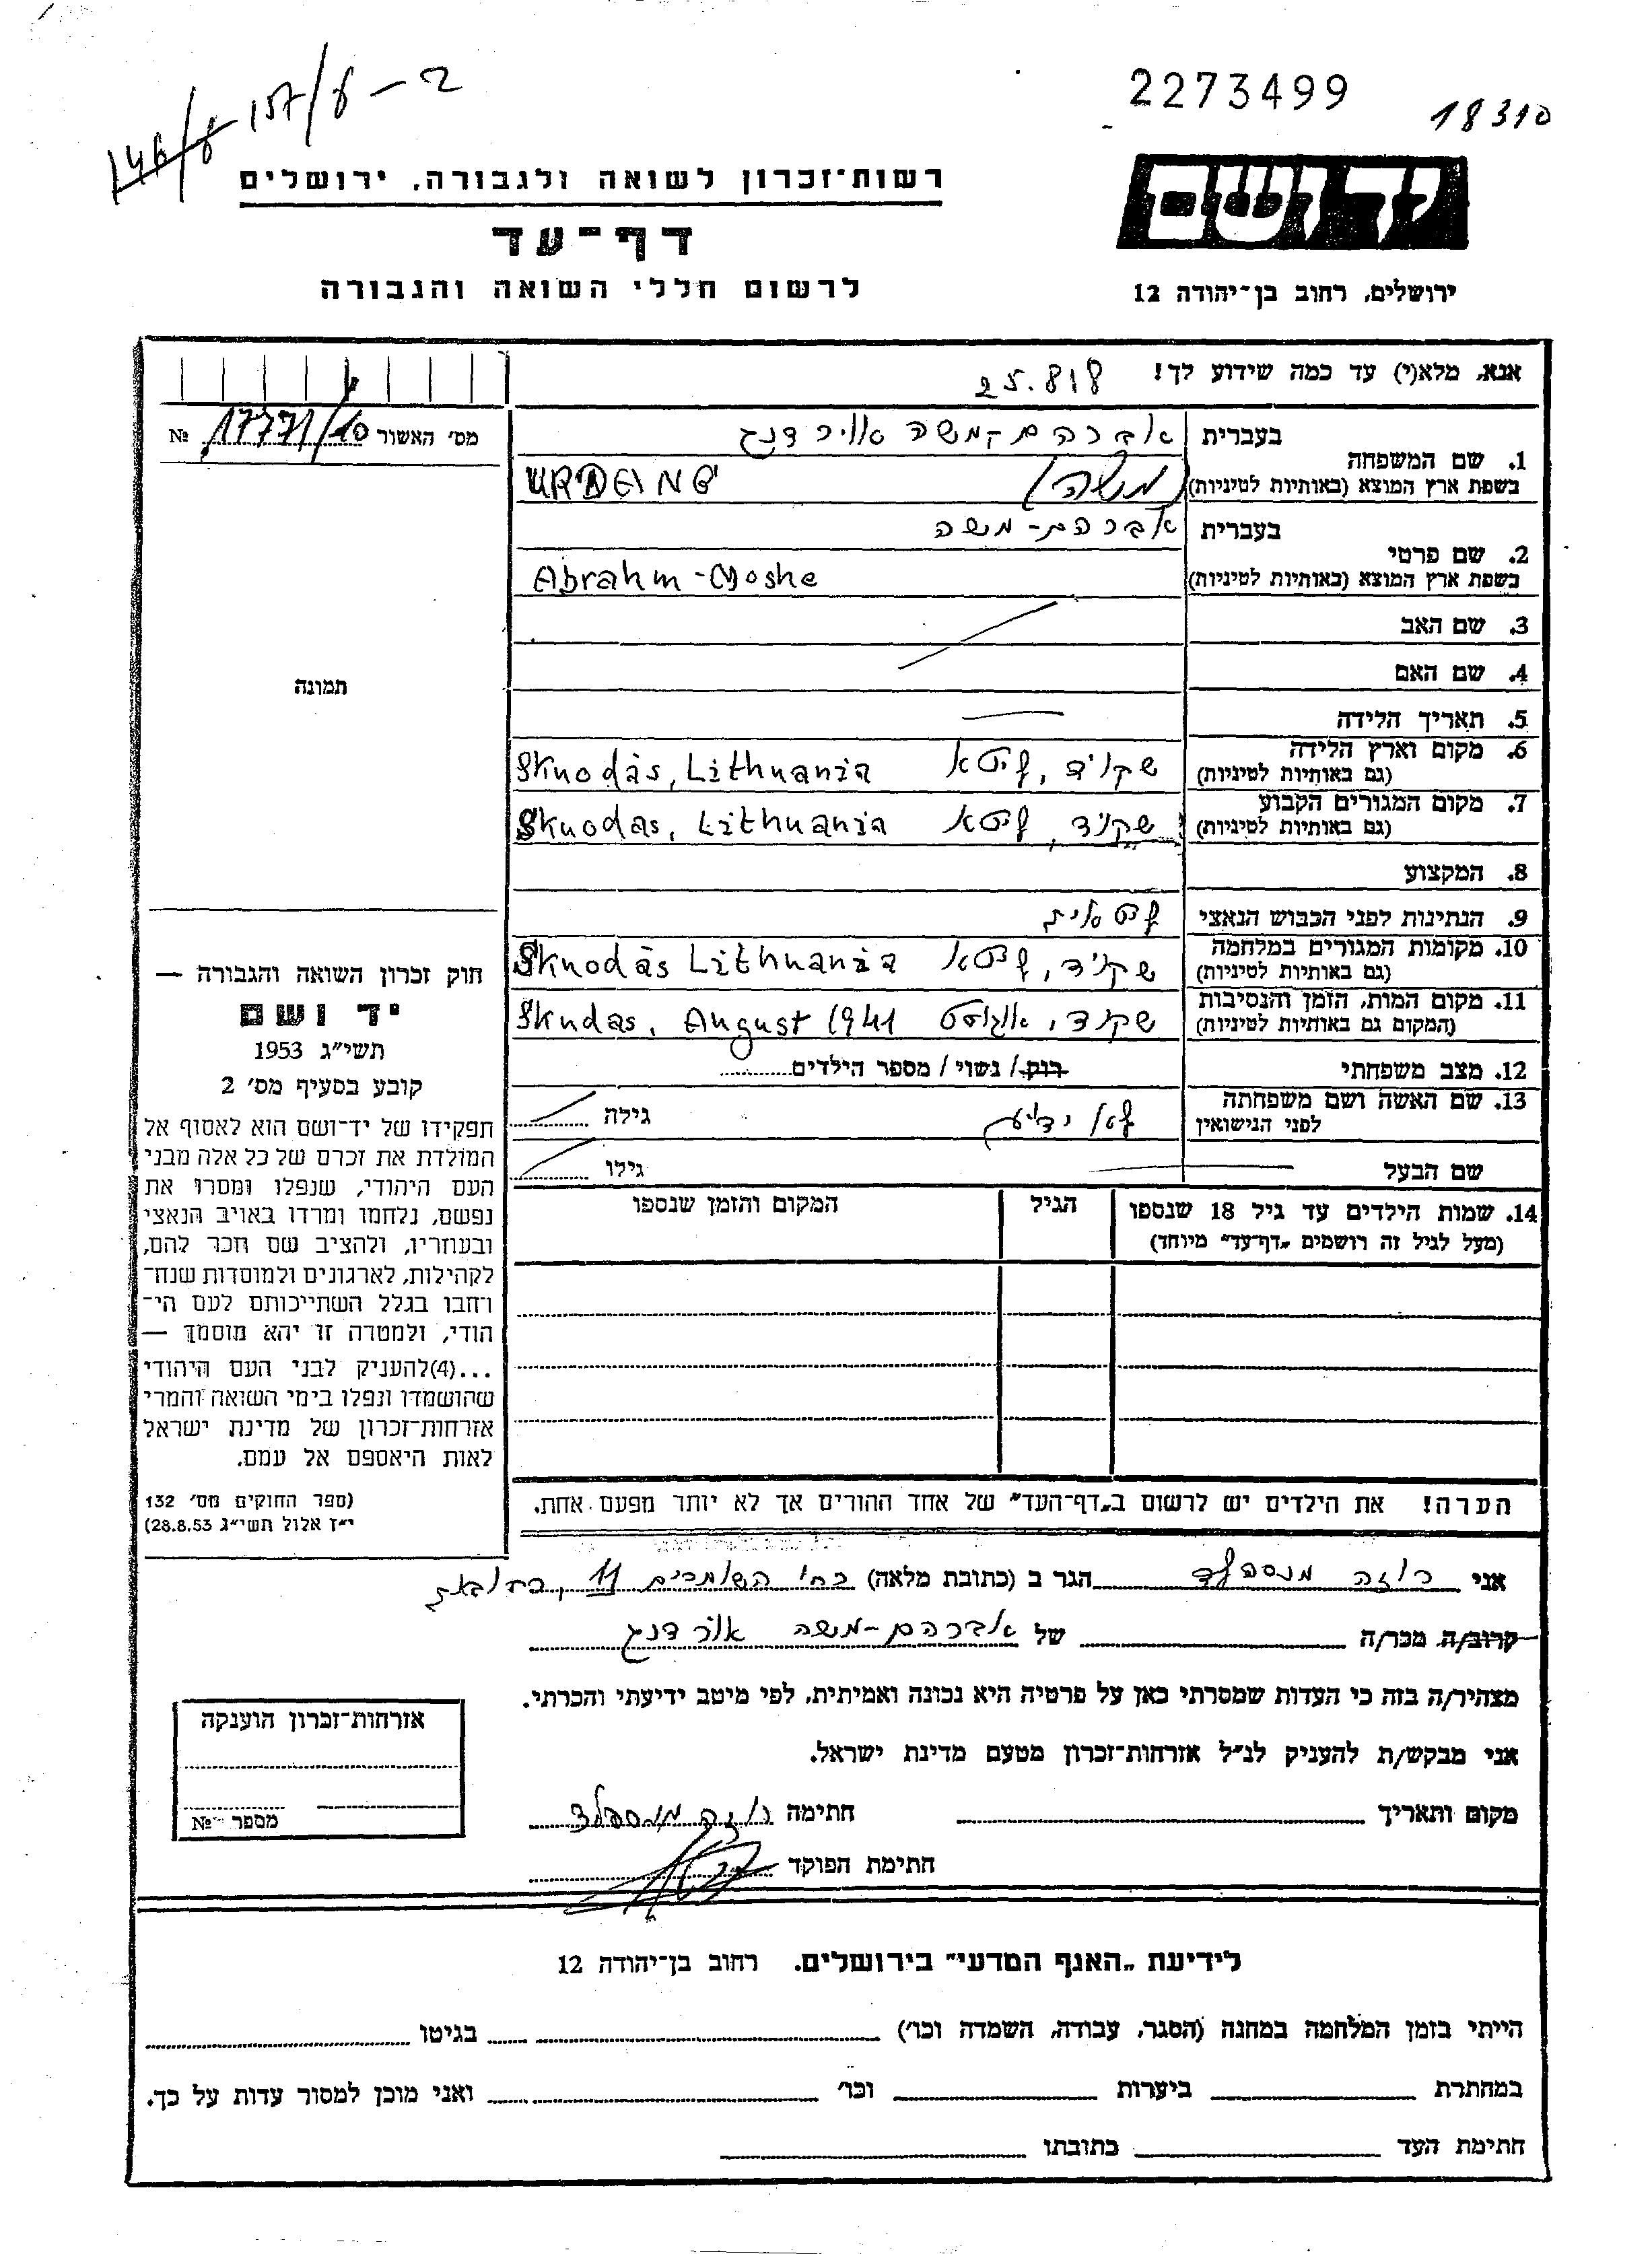 146/8 157/8 – 2
2273499
18310
רשות-זכרון לשואה ולגבורה, ירושלים
דף-עד
לרשום חללי השואה והגבורה
יד ושם
ירושלים, רחוב בן-יהודה 12
אנא, מלא(י) עד כמה שידוע לך!
25.818
מס' האשור 17771/10 №
1. שם המשפחה
בעברית
בשפת ארץ המוצא (באותיות לטיניות)
(משה)
2. שם פרטי
בעברית אברהם-משה
בשפת ארץ המוצא (באותיות לטיניות) Abrahm-Moshe
3. שם האב
4. שם האם
5. תאריך הלידה
6. מקום וארץ הלידה
(גם באותיות לטיניות)
שקוד, ליטא Skuodas, Lithuania
7. מקום המגורים הקבוע
(גם באותיות לטיניות)
שקוד, ליטא Skuodas, Lithuania
8. המקצוע
9. הנתינות לפני הכבוש הנאצי ליטאית
10. מקומות המגורים במלחמה
(גם באותיות לטיניות)
שקוד, ליטא Skuodas Lithuania
11. מקום המות, הזמן והנסיבות
(המקום גם באותיות לטיניות)
שקוד, אוגוסט Skudas, August 1941
12. מצב משפחתי רווק / נשוי / מספר הילדים
13. שם האשה ושם משפחתה
לפני הנישואין
לא ידוע גילה
שם הבעל גילו
14. שמות הילדים עד גיל 18 שנספו
(מעל לגיל זה רושמים „דף-עד" מיוחד)
הגיל
המקום והזמן שנספו
הערה! את הילדים יש לרשום ב„דף-העד" של אחד ההורים אך לא יותר מפעם אחת.
תמונה
חוק זכרון השואה והגבורה —
יד ושם
תשי"ג 1953
קובע בסעיף מס' 2
תפקידו של יד-ושם הוא לאסוף אל
המולדת את זכרם של כל אלה מבני
העם היהודי, שנפלו ומסרו את
נפשם, נלחמו ומרדו באויב הנאצי
ובעוזריו, ולהציב שם וזכר להם,
לקהילות, לארגונים ולמוסדות שנח-
רבו בגלל השתייכותם לעם הי-
הודי, ולמטרה זו יהא מוסמך —
...(4)להעניק לבני העם היהודי
שהושמדו ונפלו בימי השואה והמרי
אזרחות-זכרון של מדינת ישראל
לאות היאספם אל עמם.
(ספר החוקים מס' 132
י"ז אלול תשי"ג 28.8.53)
אני רוזה מנספלד הגר ב (כתובת מלאה) רח' השומרים 11, רחובות
קרוב/ה מכר/ה של אברהם-משה אורדנג
מצהיר/ה בזה כי העדות שמסרתי כאן על פרטיה היא נכונה ואמיתית, לפי מיטב ידיעתי והכרתי.
אני מבקש/ת להעניק לנ"ל אזרחות-זכרון מטעם מדינת ישראל.
מקום ותאריך חתימה רוזה מנספלד
חתימת הפוקד
אזרחות-זכרון הוענקה
מספר №
לידיעת „האגף המדעי" בירושלים. רחוב בן-יהודה 12
הייתי בזמן המלחמה במחנה (הסגר, עבודה, השמדה וכו') בגיטו
במחתרת ביערות וכו' ואני מוכן למסור עדות על כך.
חתימת העד כתובתו